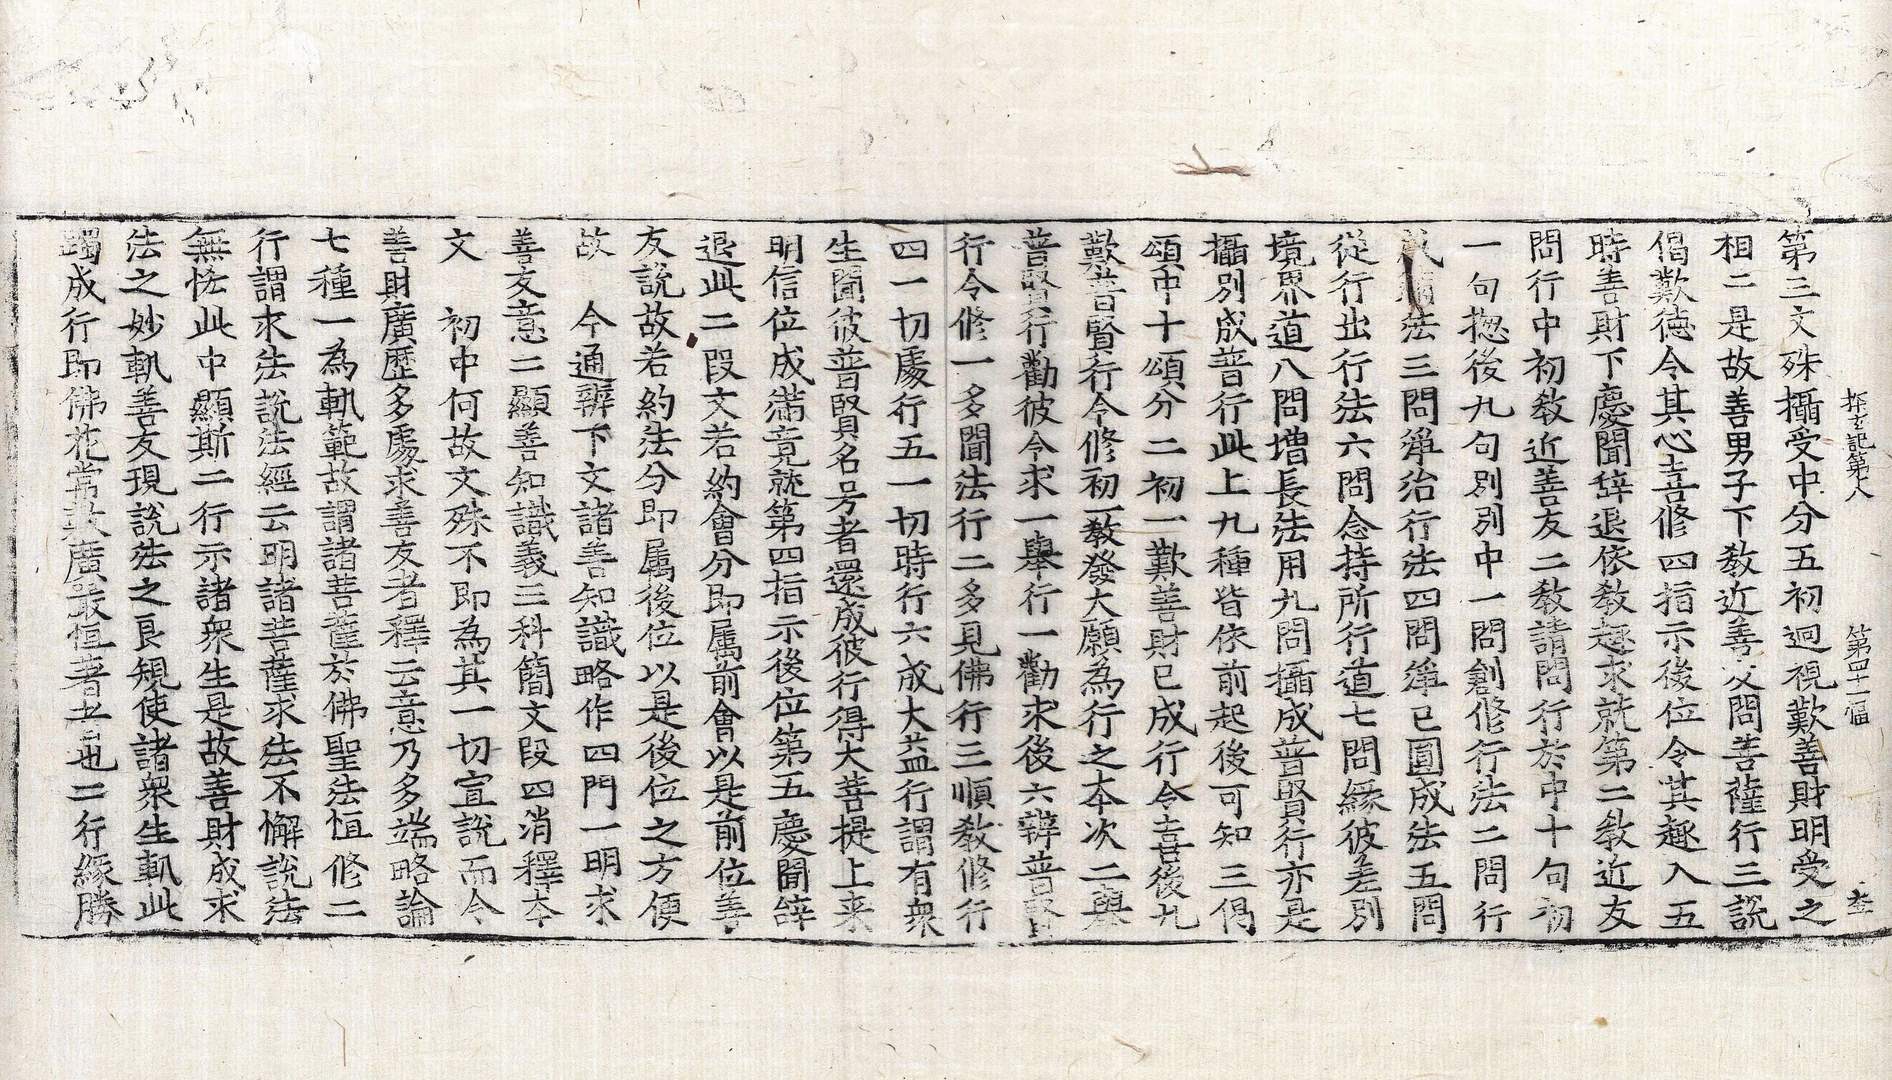 探玄記第八　第四十一幅　夲
第三文殊攝受中分五初迴視歎善財明受之
相二是故善男子下敎近善友問菩薩行三說
偈歎德令其心喜修四指示後位令其趣入五
時善財下慶聞辝退依敎趣求就第二敎近友
問行中初敎近善友二敎請問行於中十句初
一句捴後九句別別中一問創修行法二問行
成滿法三問彈治行法四問淨已圓成法五問
從行出行法六問念持所行道七問緣彼差別
境界道八問增長法用九問攝成普賢行亦是
攝別成普行此上九種皆依前起後可知三偈
頌中十頌分二初一歎善財已成行令喜後九
歎普賢行令修初一敎發大願為行之本次二與
普賢行勸彼令求一舉行一勸求後六辨普賢
行令修一多聞法行二多見佛行三順敎修行
四一切處行五一切時行六成大益行謂有衆
生聞彼普賢名号者還成彼行得大菩提上来
明信位成滿竟就第四指示後位第五慶聞辝
退此二段文若約會分即属前會以是前位善
友說故若約法分即属後位以是後位之方便
故　今通辨下文諸善知識略作四門一明求
善友意二顯善知識義三科簡文段四消釋本
文　初中何故文殊不即為其一切宣說而令
善財廣歷多處求善友者釋云意乃多端略論
七種一為軌範故謂諸菩薩於佛聖法恒修二
行謂求法說法經云明諸菩薩求法不懈說法
無恡此中顯斯二行示諸衆生是故善財成求
法之妙軌善友現說法之良規使諸衆生軌此
躅成行即佛花常敷廣嚴恒著者也二行緣勝